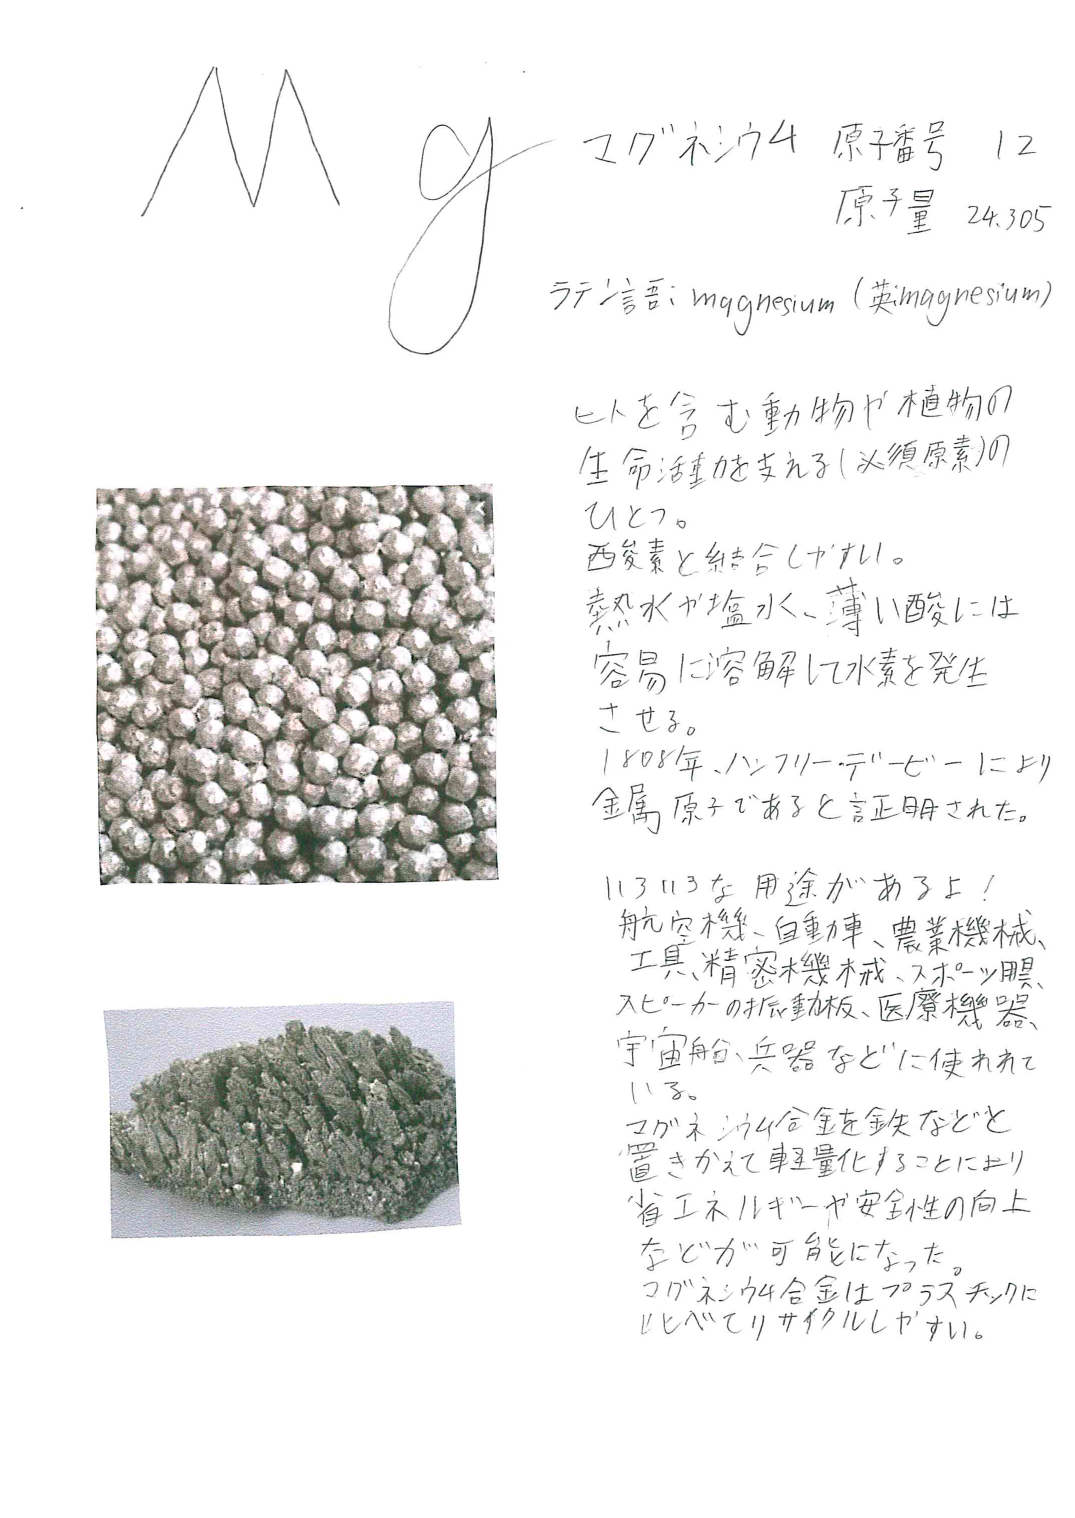 Mg
マグネシウム 原子番号 12
原子量 24.305
ラテン語: magnesium (英:magnesium)
ヒトを含む動物や植物の
生命活動を支える(必須原素)の
ひとつ。
酸素と結合しやすい。
熱水や塩水、薄い酸には
容易に溶解して水素を発生
させる。
1808年、ハンフリー・デービーにより
金属原子であると証明された。
いろいろな用途があるよ!
航空機、自動車、農業機械、
工具、精密機械、スポーツ用具、
スピーカーの振動板、医療機器、
宇宙船、兵器などに使われて
いる。
マグネシウム合金を鉄などと
置きかえて軽量化することにより
省エネルギーや安全性の向上
などが可能になった。
マグネシウム合金はプラスチックに
比べてリサイクルしやすい。